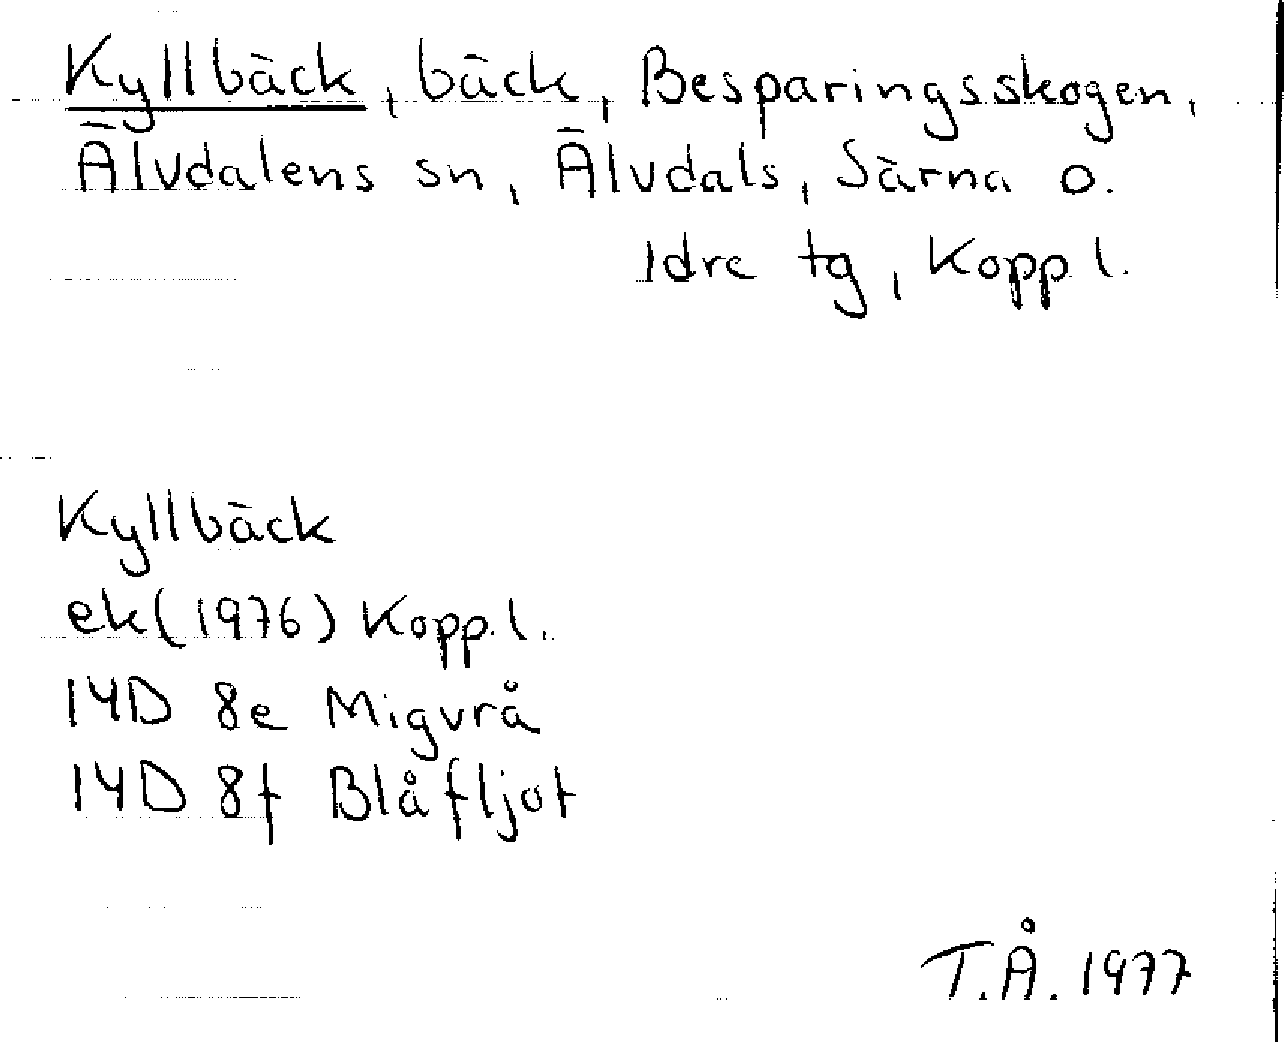 Kyllbäck, bäck, Besparingsskogen,
Älvdalens sn, Älvdals, Särna o.
Idre tg, Kopp l.
Kyllbäck
ek(1976) Kopp.l.
14D 8e Migvrå
14D 8f Blåfljot
T.Å. 1977